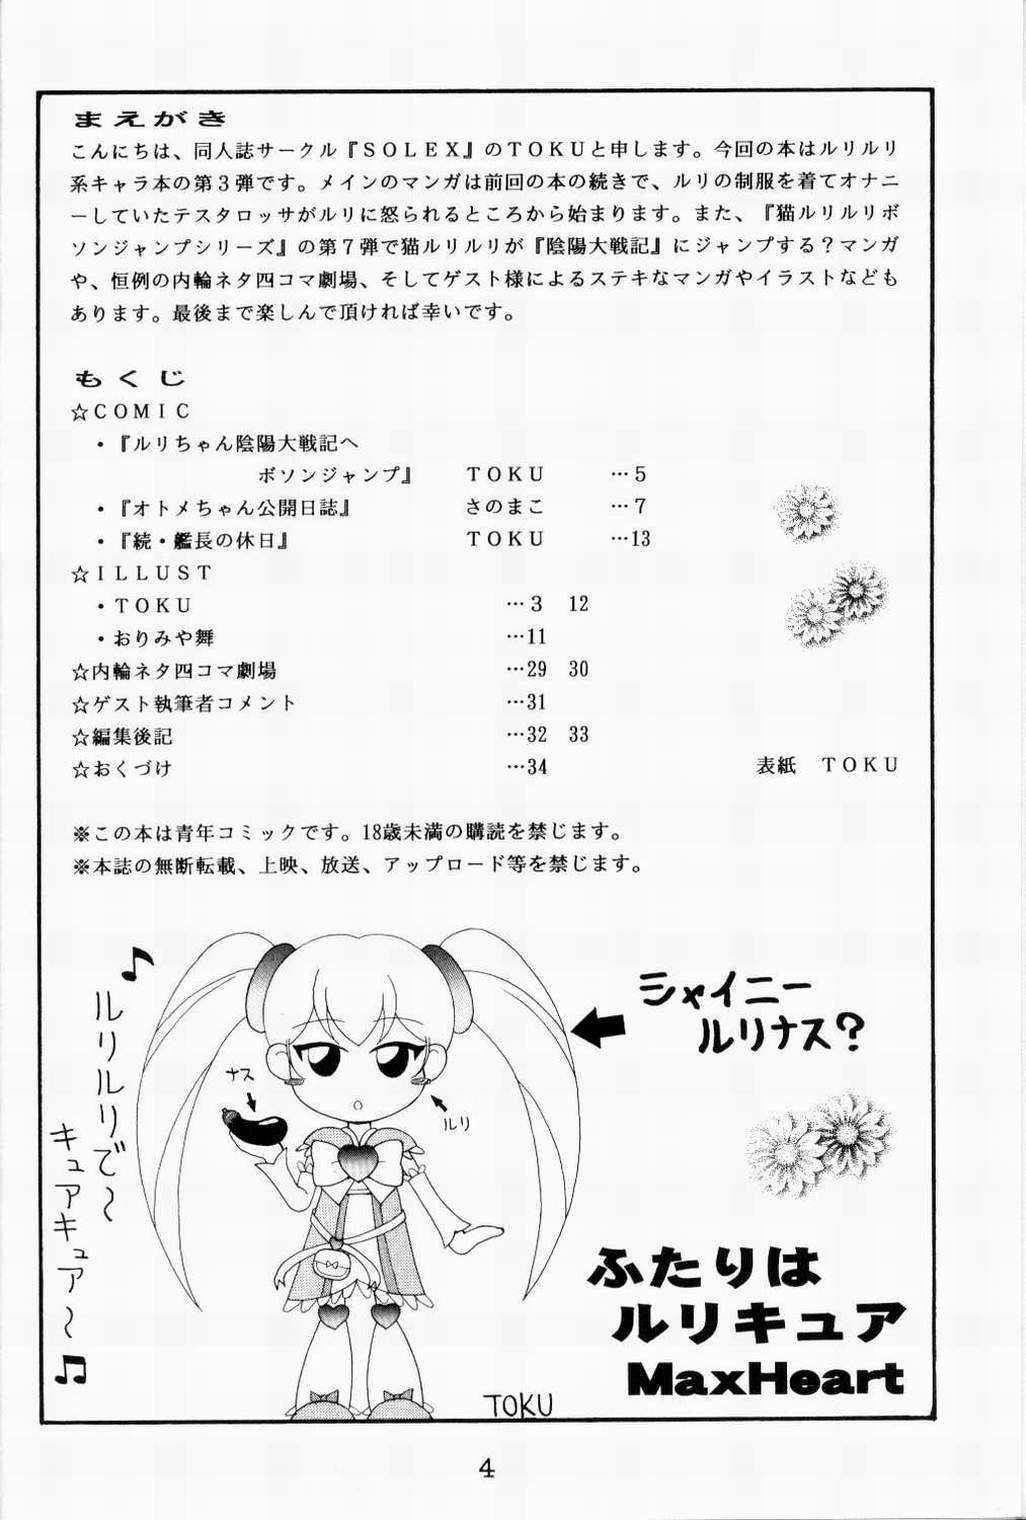 まえがき
こんにちは、同人誌サークル『ＳＯＬＥＸ』のＴＯＫＵと申します。今回の本はルリルリ
系キャラ本の第３弾です。メインのマンガは前回の本の続きで、ルリの制服を着てオナニ
ーしていたテスタロッサがルリに怒られるところから始まります。また、『猫ルリルリボ
ソンジャンプシリーズ』の第７弾で猫ルリルリが『陰陽大戦記』にジャンプする？マンガ
や、恒例の内輪ネタ四コマ劇場、そしてゲスト様によるステキなマンガやイラストなども
あります。最後まで楽しんで頂ければ幸いです。
もくじ
☆ＣＯＭＩＣ
・『ルリちゃん陰陽大戦記へ
ボソンジャンプ』　ＴＯＫＵ　…５
・『オトメちゃん公開日誌』　さのまこ　…７
・『続・艦長の休日』　ＴＯＫＵ　…13
☆ＩＬＬＵＳＴ
・ＴＯＫＵ　…３　12
・おりみや舞　…11
☆内輪ネタ四コマ劇場　…29　30
☆ゲスト執筆者コメント　…31
☆編集後記　…32　33
☆おくづけ　…34　表紙　ＴＯＫＵ
※この本は青年コミックです。18歳未満の購読を禁じます。
※本誌の無断転載、上映、放送、アップロード等を禁じます。
シャイニー
ルリナス？
ナス
ルリ
♪ルリルリで～
キュアキュア～♫
ふたりは
ルリキュア
MaxHeart
TOKU
4